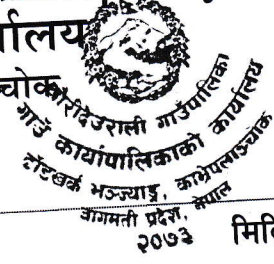 र्यालय
चोक
चौरीदेउराली गाउँपालिका
गाउँ कार्यापालिकाको कार्यालय
ढाँडखर्क भञ्ज्याङ्ग, काभ्रेपलाञ्चोक
वागमती प्रदेश, नेपाल
२०७३
मिति